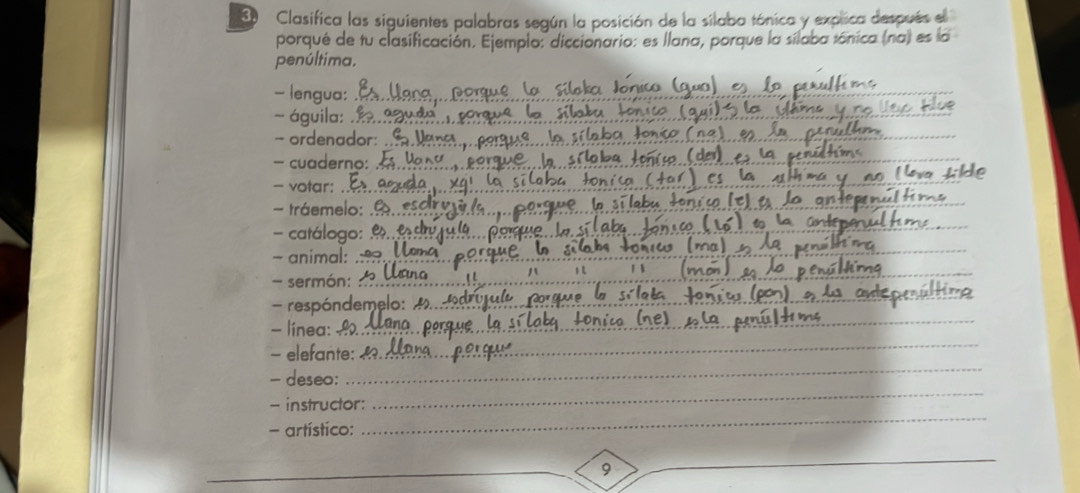 3. Clasifica las siguientes palabras según la posición de la sílaba tónica y explica después el
porqué de tu clasificación. Ejemplo: diccionario: es llana, porque la sílaba tónica (na) es la
penúltima.
– lengua: Es llana, porque la sílaba tónica (gua) es la penultima
– águila: Es aguda, porque la sílaba tonica (gui) es la última y no
– ordenador: Es llana, porque la sílaba tonica (na) es la penultima
– cuaderno: Es llana, porque la sílaba tónica (der) es la penúltima
– votar: Es aguda, xq! la silaba tonica (tar) es la ultima y no lleva tilde
– tráemelo: es esdrújula, porque la sílaba tonica (e) es la antepenúltima
– catálogo: es esdrújula porque la sílaba tónica (ló) es la antepenultima
– animal: es llana porque la sílaba tonica (ma) es la penúltima
– sermón: es llana " " " " (mon) es la penúltima
– respóndemelo: es esdrújula porque la sílaba tonica (pon) es la antepenúltima
– línea: es llana porque la sílaba tonica (ne) es la penúltima
– elefante: es llana porque
– deseo:
– instructor:
– artístico:
9